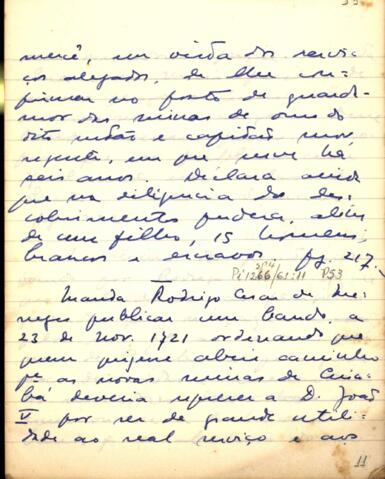 mercê, em vista dos servi-
ços alegados, de lhe con-
firmar no posto de guarda-
mor das minas de ouro do
dito sertão e capitão mor
regente, em que serve há
seis anos. Declara ainda
que na diligencia do des-
cobrimento perdera, além
de um filho, 15 homens,
brancos e escravos pg. 217.
Pi 1266/61:11 P53
Manda Rodrigo Cesar de Me-
nezes publicar um bando, a
23 de Nov. 1721 ordenando que
quem quizesse abrir caminho
pª as novas minas de Cuia-
bá deveria requerer a D. João
V por ser de grande utili-
dade ao real serviço e aos
11